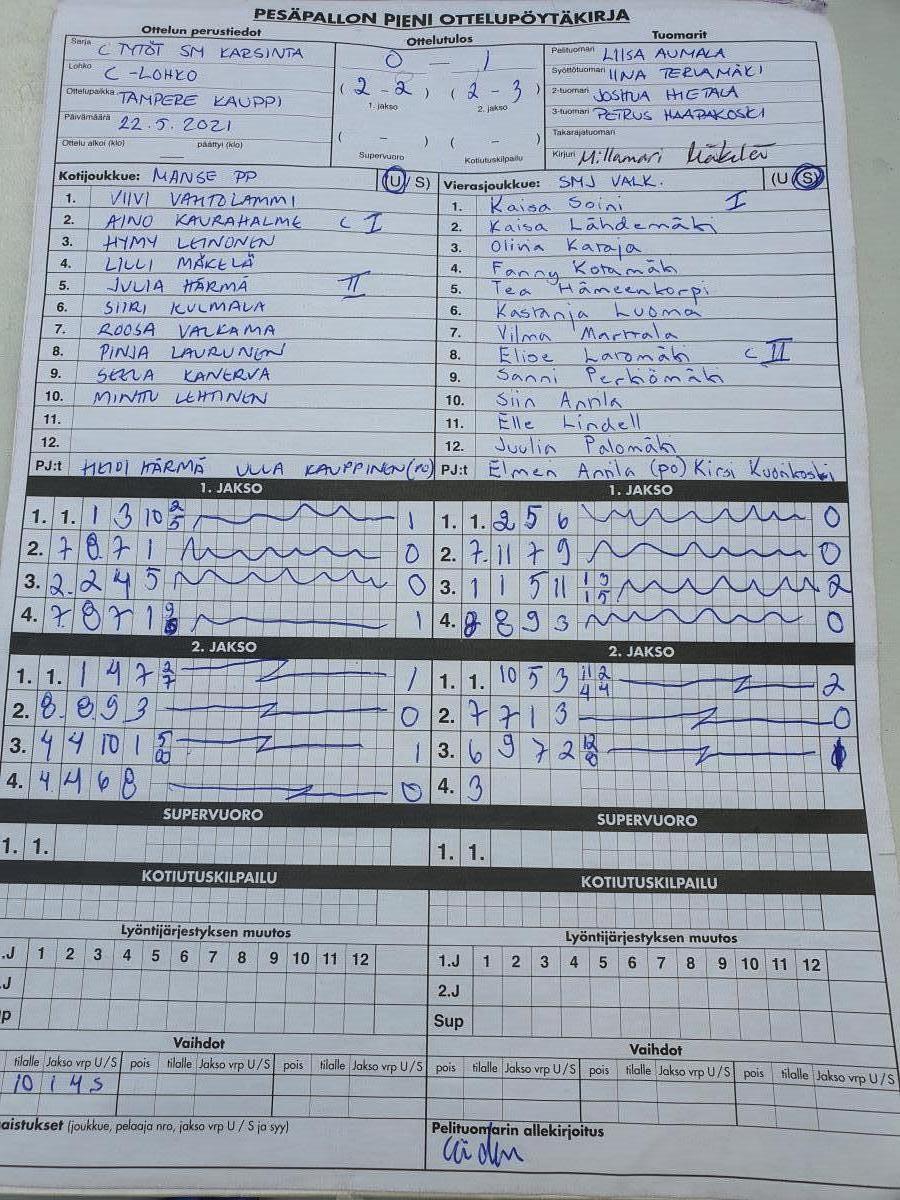 PESÄPALLON PIENI OTTELUPÖYTÄKIRJA
Ottelun perustiedot
Sarja C TYTÖT SM KARSINTA
Lohko C-LOHKO
Ottelupaikka TAMPERE KAUPPI
Päivämäärä 22.5.2021
Ottelu alkoi (klo) — päättyi (klo)
Ottelutulos
0 — 1
( 2 - 2 ) ( 2 - 3 )
1. jakso 2. jakso
( - ) ( - )
Supervuoro Kotiutuskilpailu
Tuomarit
Pelituomari LIISA AUMALA
Syöttötuomari IINA TERVAMÄKI
2-tuomari JOSHUA HIETALA
3-tuomari PETRUS HAAPAKOSKI
Takarajatuomari
Kirjuri Millamari Mäkelä
Kotijoukkue: MANSE PP (U/S)
1. VIIVI VAHTOLAMMI
2. AINO KAURAHALME C I
3. HYMY LEINONEN
4. LILLI MÄKELÄ
5. JULIA HÄRMÄ II
6. SIIRI KULMALA
7. ROOSA VALKAMA
8. PINJA LAURUNEN
9. SEELA KANERVA
10. MINTTU LEHTINEN
11.
12.
PJ:t HEIDI HÄRMÄ ULLA KAUPPINEN (PO)
Vierasjoukkue: SMJ VALK. (U/S)
1. Kaisa Soini I
2. Kaisa Lähdemäki
3. Olivia Karaja
4. Fanny Kotamäki
5. Tea Hämeenkorpi
6. Kastanja Luoma
7. Vilma Marttala
8. Elise Laromäki C II
9. Sanni Perkiömäki
10. Siin Annla
11. Elle Lindell
12. Juulia Palomäki
PJ:t Elmen Annila (po) Kirsi Kuonkoski
1. JAKSO
1. 1. 1 3 10 2/5 1
2. 7 8 7 1 0
3. 2 2 4 5 0
4. 7 8 7 1 1
1. JAKSO
1. 1. 2 5 6 0
2. 7 11 7 9 0
3. 1 1 5 11 1/1 3/5 2
4. 8 8 9 3 0
2. JAKSO
1. 1. 1 4 7 2/7 1
2. 8 8 9 3 0
3. 4 4 10 1 5/8 1
4. 4 4 6 8 0
2. JAKSO
1. 1. 10 5 3 11/4 2/4 2
2. 7 7 1 3 0
3. 6 9 7 2 12/8 1
4. 3
SUPERVUORO
1. 1.
SUPERVUORO
1. 1.
KOTIUTUSKILPAILU
KOTIUTUSKILPAILU
Lyöntijärjestyksen muutos
.J 1 2 3 4 5 6 7 8 9 10 11 12
.J
p
Lyöntijärjestyksen muutos
1.J 1 2 3 4 5 6 7 8 9 10 11 12
2.J
Sup
Vaihdot
tilalle Jakso vrp U/S pois tilalle Jakso vrp U/S pois tilalle Jakso vrp U/S
10 1 4 S
Vaihdot
pois tilalle Jakso vrp U/S pois tilalle Jakso vrp U/S pois tilalle Jakso vrp U/S
aistukset (joukkue, pelaaja nro, jakso vrp U / S ja syy)
Pelituomarin allekirjoitus